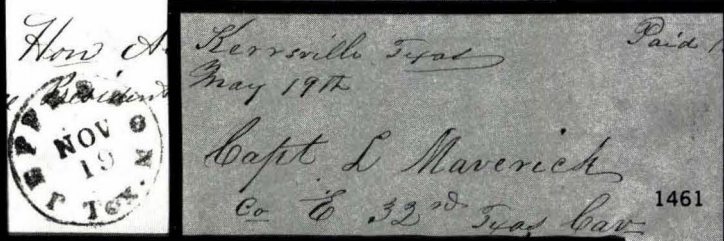 Hon A
NOV
19
TEX.
Kerrsville Texas
Paid
May 19th
Capt L Maverick
Co E 32nd Texas Cav
1461